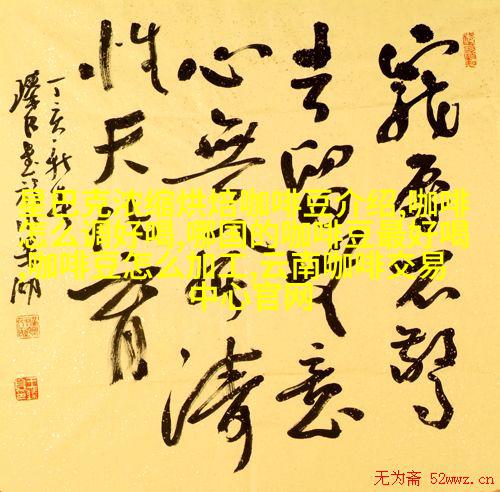 寵辱不驚
去留無意
心無風涛
性天化育
丁亥秋
星巴克浓缩烘焙咖啡豆介绍,咖啡
怎么调好喝,哪国的咖啡豆最好喝
,咖啡豆怎么加工,云南咖啡交易
中心官网
无为斋 52wwz.cn